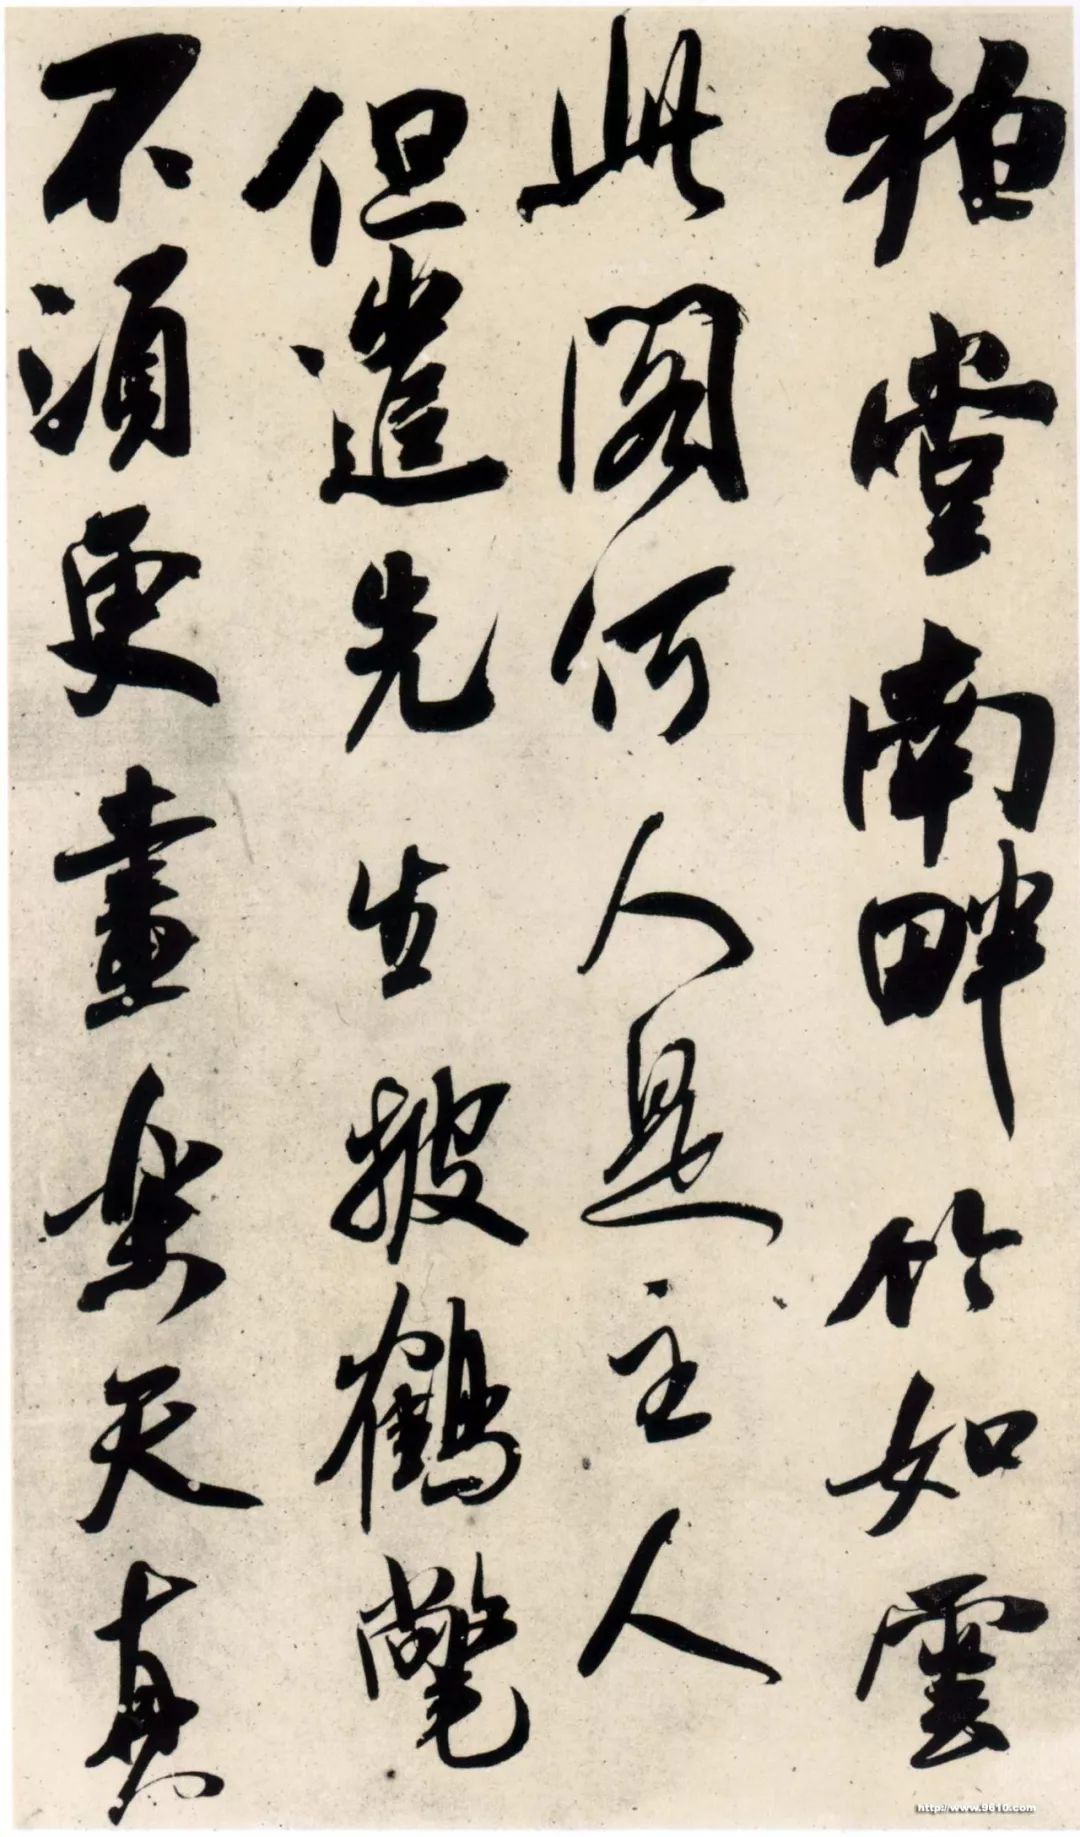 種堂南畔竹如雲
此閣何人是主人
但遣先生披鶴氅
不須更畫樂天真
http://www.9610.com